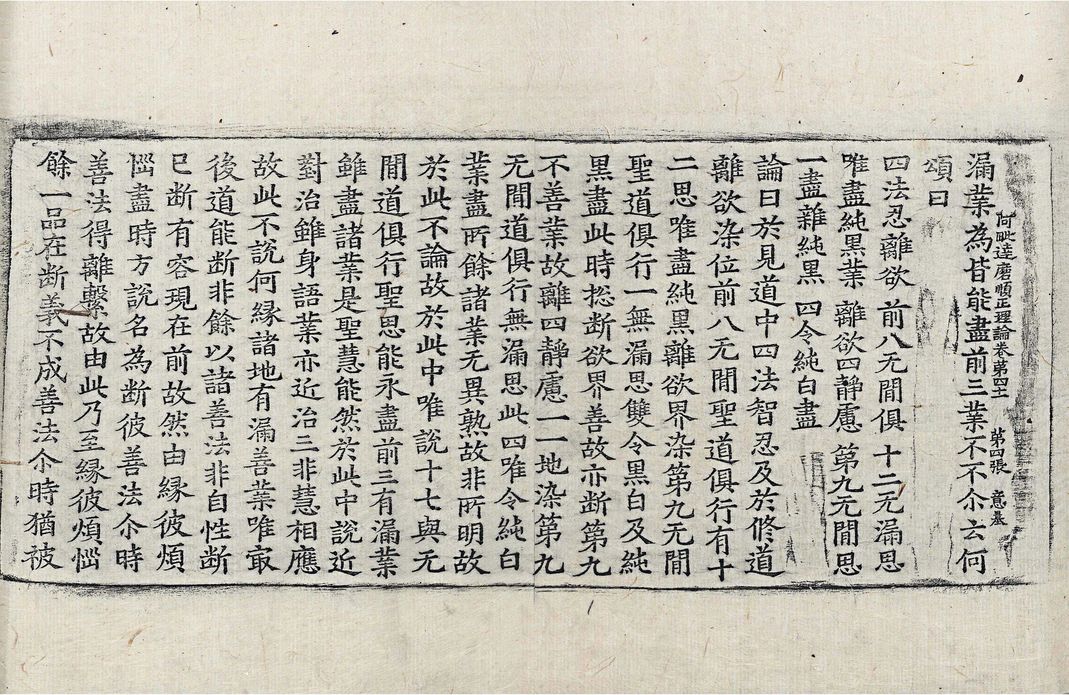 阿毗達磨順正理論卷第四十一 第四張 意基
漏業為皆能盡前三業不不尒云何
頌曰
四法忍離欲 前八无間俱 十二无漏思
唯盡純黑業 離欲四靜慮 第九无間思
一盡雜純黑 四令純白盡
論曰於見道中四法智忍及於修道
離欲染位前八无間聖道俱行有十
二思唯盡純黑離欲界染第九无間
聖道俱行一無漏思雙令黑白及純
黑盡此時揔断欲界善故亦断第九
不善業故離四靜慮一一地染第九
无間道俱行無漏思此四唯令純白
業盡所餘諸業无異熟故非所明故
於此不論故於此中唯說十七與无
間道俱行聖思能永盡前三有漏業
雖盡諸業是聖慧能然於此中說近
對治雖身語業亦近治二非慧相應
故此不說何縁諸地有漏善業唯㝡
後道能断非餘以諸善法非自性断
已断有容現在前故然由縁彼煩
惱盡時方說名為断彼善法尒時
善法得離繫故由此乃至縁彼煩惱
餘一品在断義不成善法尒時猶被